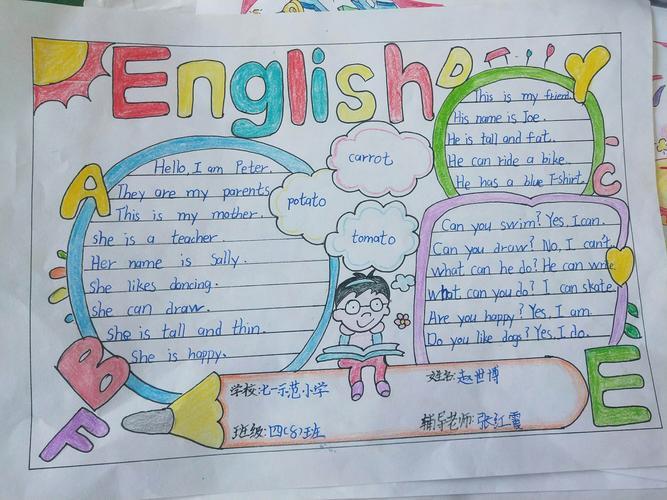 English
D
Y
A
C
B
F
E
Hello, I am Peter.
They are my parents
This is my mother.
she is a teacher.
Her name is Sally.
She likes dancing.
she can draw.
She is tall and thin.
She is happy.
carrot
potato
tomato
This is my friend.
His name is Joe.
He is tall and fat.
He can ride a bike.
He has a blue T-shirt.
Can you swim? Yes, I can.
Can you draw? No, I can't
what can he do? He can write
what can you do? I can skate.
Are you happy? Yes, I am.
Do you like dogs? Yes, I do.
学校:北一示范小学
姓名:赵世博
班级:四(8)班
辅导老师:张红霞